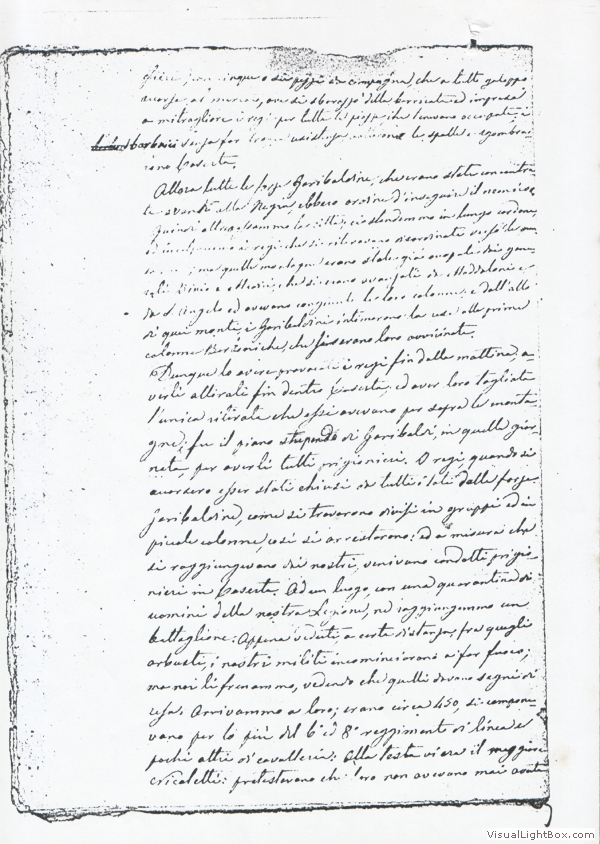 cinque o sei pezzi da campagna, che a tutto galoppo
si sbarazzò delle barricate ed impresa
a mitragliare i regi per tutte le
Borbonici le spalle e sgombra-
rono Caserta.
Allora tutte le forze Garibaldine, che erano state concentra-
te avanti alla Reggia, ebbero ordine d'inseguire il nemico.
Quindi oltrepassammo la città, ci stendemmo in lungo cordone,
i regi che si ritiravano disordinati verso le mon-
ma quelle montagne erano state già occupate dai gene-
rali Bixio e che si erano avanzati da Maddaloni e
da S. Angelo ed avevano congiunte le loro colonne, e dall'alto
di quei monti, i Garibaldini intimarono la resa alle prime
colonne Borboniche, che si erano loro avvicinate.
Dunque lo avere provocati i regi fin dalla mattina, a-
verli attirati fin dentro Caserta, ed aver loro tagliata
l'unica ritirata che essi avevano per sopra le monta-
gne; fu il piano stupendo di Garibaldi, in quella gior-
nata, per averli tutti prigionieri. I regi, quando si
avvidero esser stati chiusi da tutti i lati dalle forze
Garibaldine, come si trovarono divisi in gruppi ed in
piccole colonne, così si arrestarono: ed a misura che
si raggiungevano dai nostri, venivano condotti prigio-
nieri in Caserta. Ad un luogo, con una quarantina di
uomini della nostra Legione, ne raggiungemmo un
battaglione: Appena veduti, a certa distanza, fra quegli
arbusti, i nostri militi incominciarono a far fuoco;
ma noi li frenammo, vedendo che quelli davano segni di
resa. Arrivammo a loro; erano circa 450, si compone-
vano per lo più del 6° ed 8° reggimento di linea e
pochi altri di cavalleria: alla testa vi era il maggiore
protestavano che loro non avevano mai avuto
VisualLightBox.com